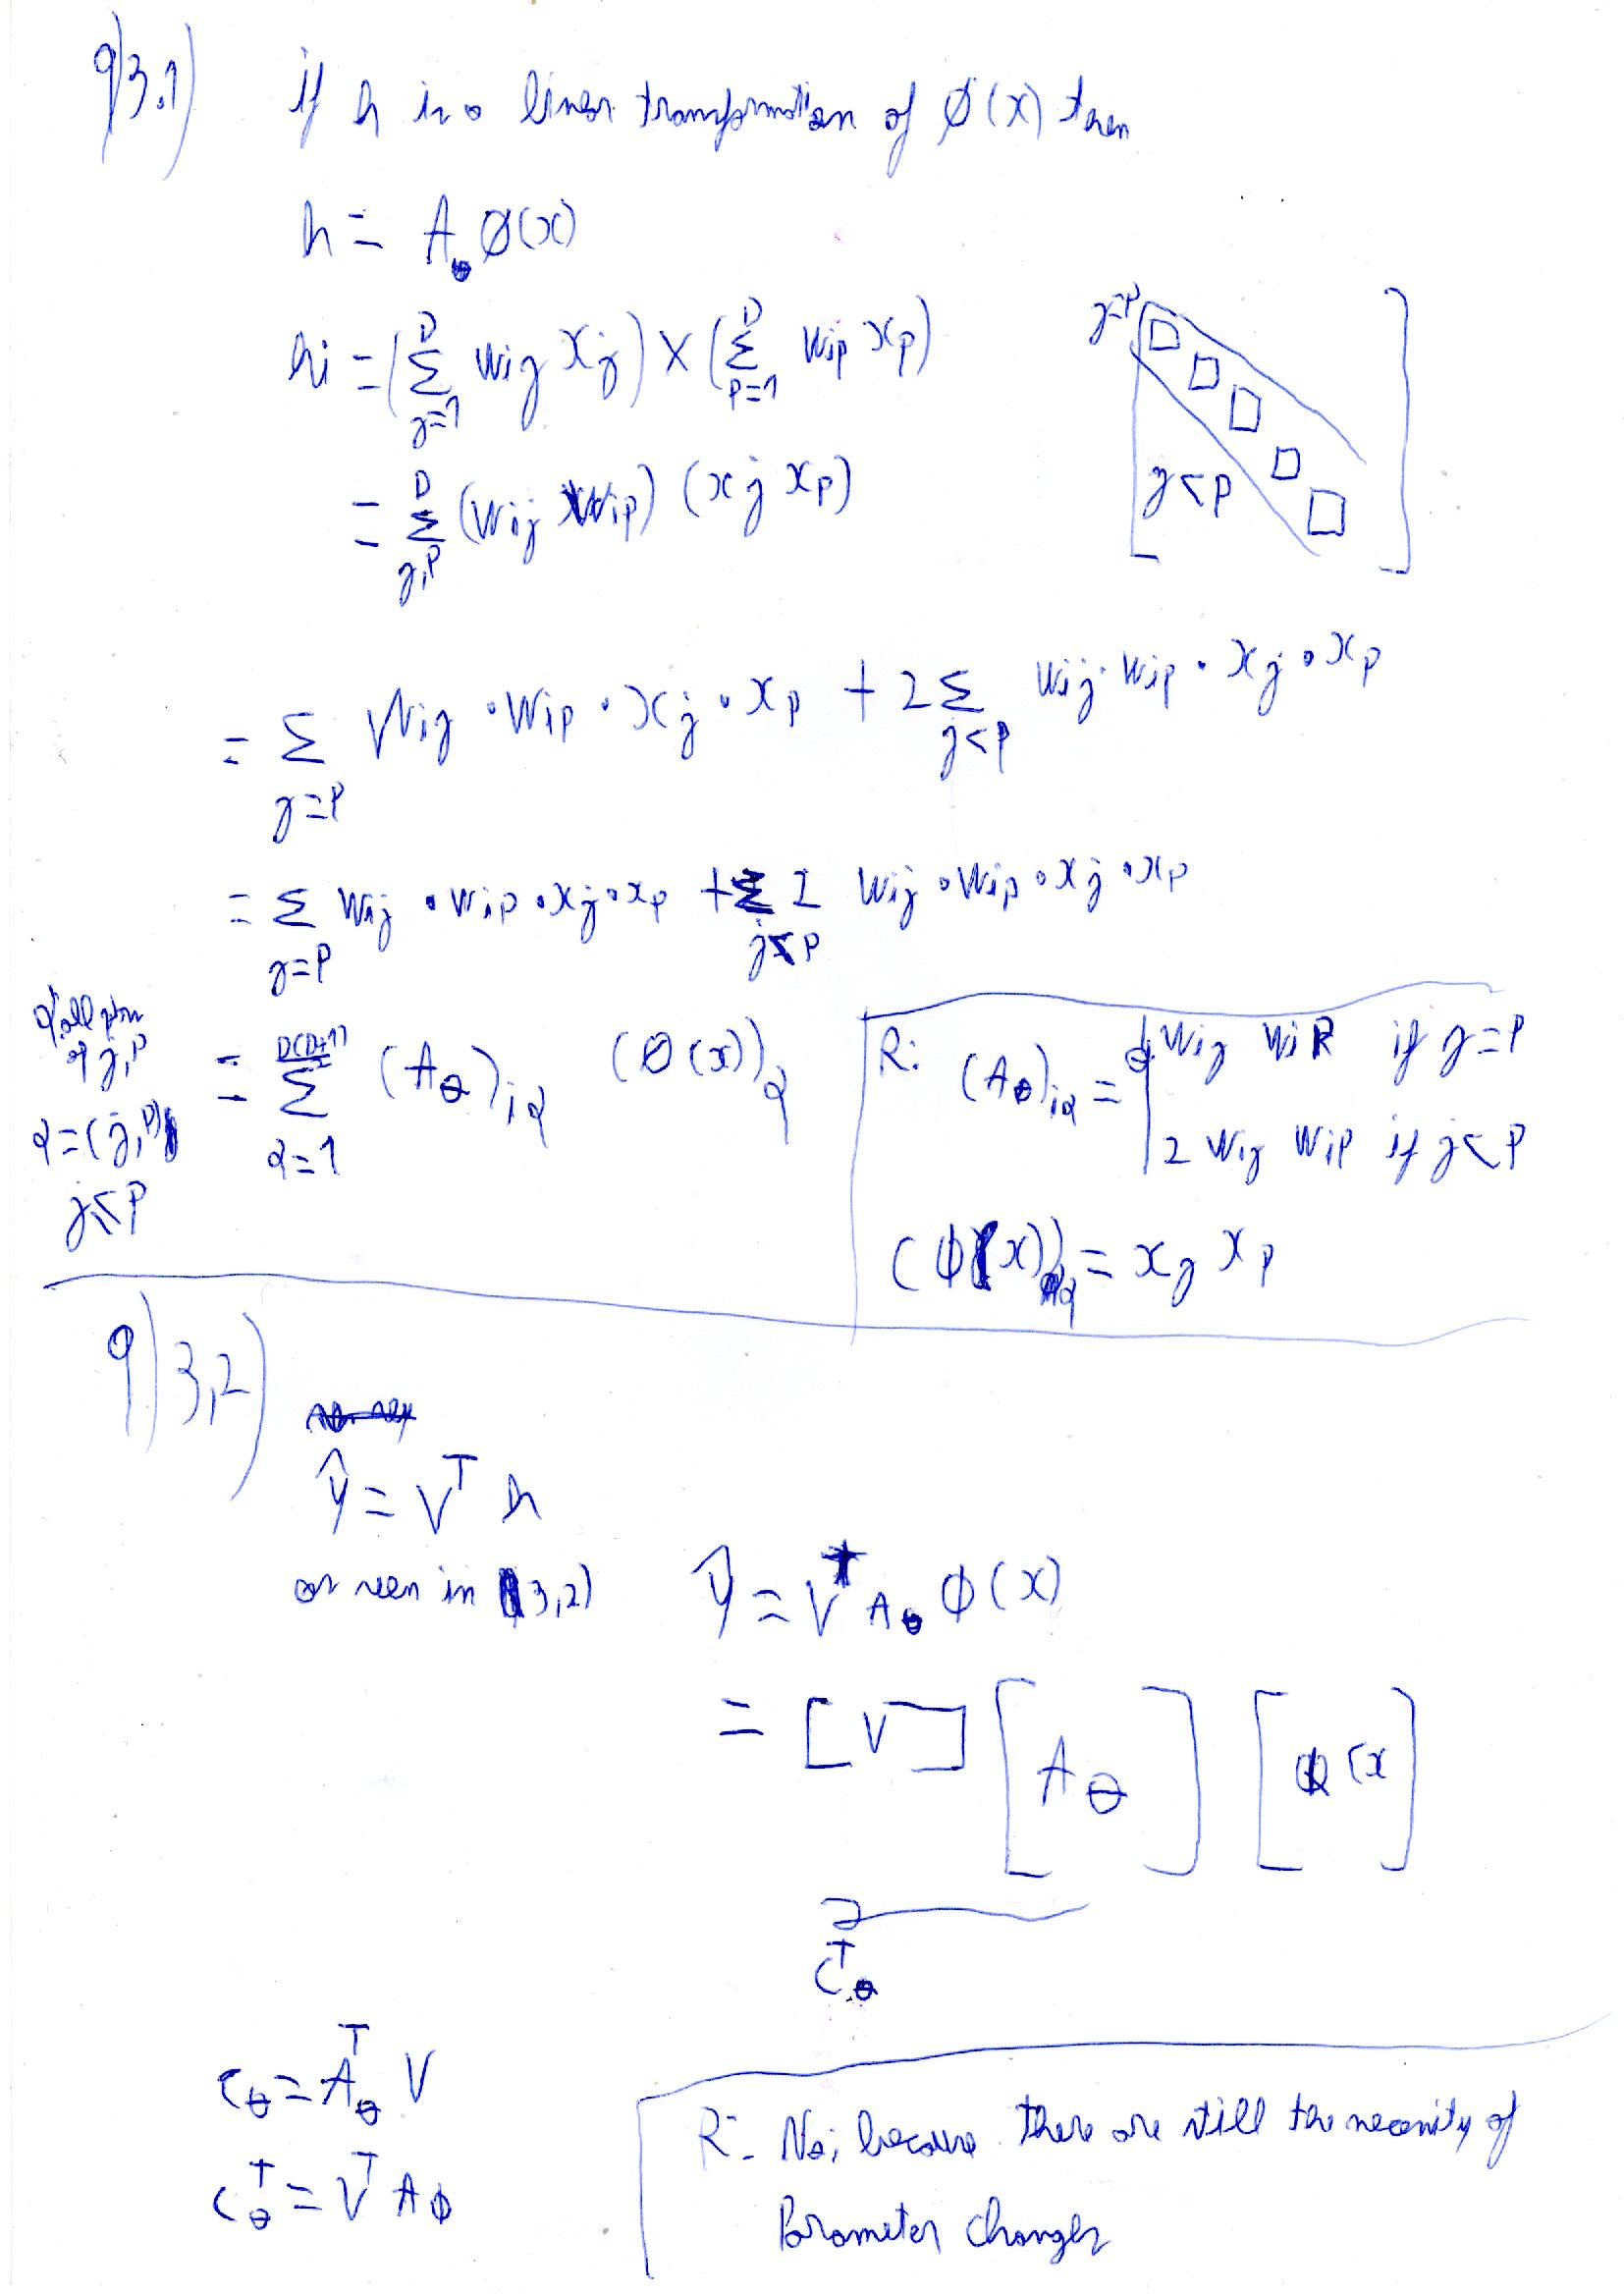 9) 3.1) if h is a linear transformation of Ø(x) then
h = A_θ Ø(x)
hi = (Σ_{j=1}^{D} Wij Xj) × (Σ_{P=1}^{D} Wip Xp)
= Σ_{j,P}^{D} (Wij Wip) (xj xp)
j=P
j<P
= Σ_{j=P} Wij • Wip • Xj • Xp + 2 Σ_{j<P} Wij • Wip • Xj • Xp
= Σ_{j=P} Wij • Wip • Xj • Xp + Σ_{j<P} 2 Wij • Wip • Xj • Xp
of j,P
α = (j,P)
j≤P
= Σ_{α=1}^{D(D+1)/2} (A_θ)_{iα} (Ø(x))_α
R: (A_θ)_{iα} = { Wij WiP if j=P
2 Wij WiP if j<P
(ϕ(x))_α = xj xp
9) 3,2)
ŷ = V^T h
as seen in 3,2) ŷ = V^T A_θ ϕ(x)
= [V] [A_θ] [ϕ(x]
C^T_θ
C_θ = A_θ^T V
C_θ^T = V^T A_ϕ
R: No, because there are still the necessity of
Parameter changes